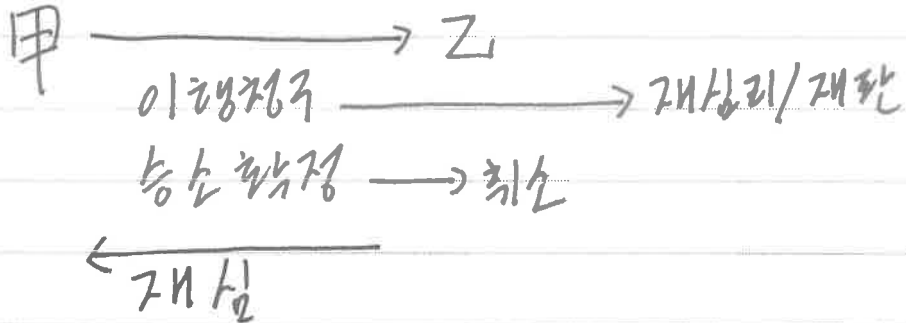 甲 → 乙
이행청구 → 재심리/재판
승소확정 → 취소
← 재심